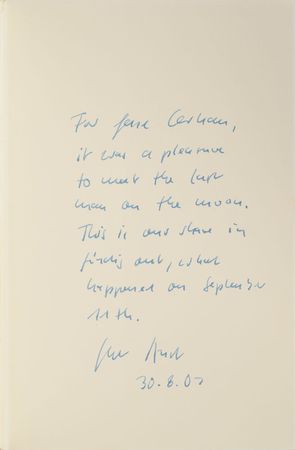 For Gene Cernan,
it was a pleasure
to meet the last
man on the moon.
This is our share in
finding out, what
happened on September
11th.